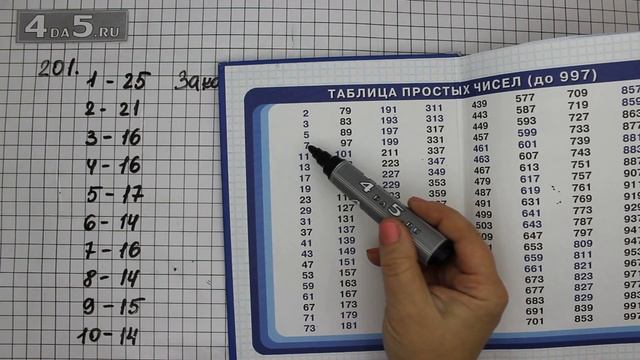 4DA5.RU
201.
1 - 25
2 - 21
3 - 16
4 - 16
5 - 17
6 - 14
7 - 16
8 - 14
9 - 15
10 - 14
ТАБЛИЦА ПРОСТЫХ ЧИСЕЛ (до 997)
2 79 191 311 439 577 709 857
3 83 193 313 443 587 719 859
5 89 197 317 449 593 727 863
7 97 199 331 457 599 733
11 101 211 337 461 601 739 881
13 223 347 463 607 743 883
17 227 349 467 613 751
19 229 353 479 617 757
23 233 359 487 619 761
29 127 491 631 769
31 131 499 641 773
37 137 643 787
41 139 647 797
43 149 653 809
47 151 659 811
53 157 661 821
59 163 673 823
61 167 677 827
67 173 683 829
71 179 691 839
73 181 701 853 997
4DA5.RU